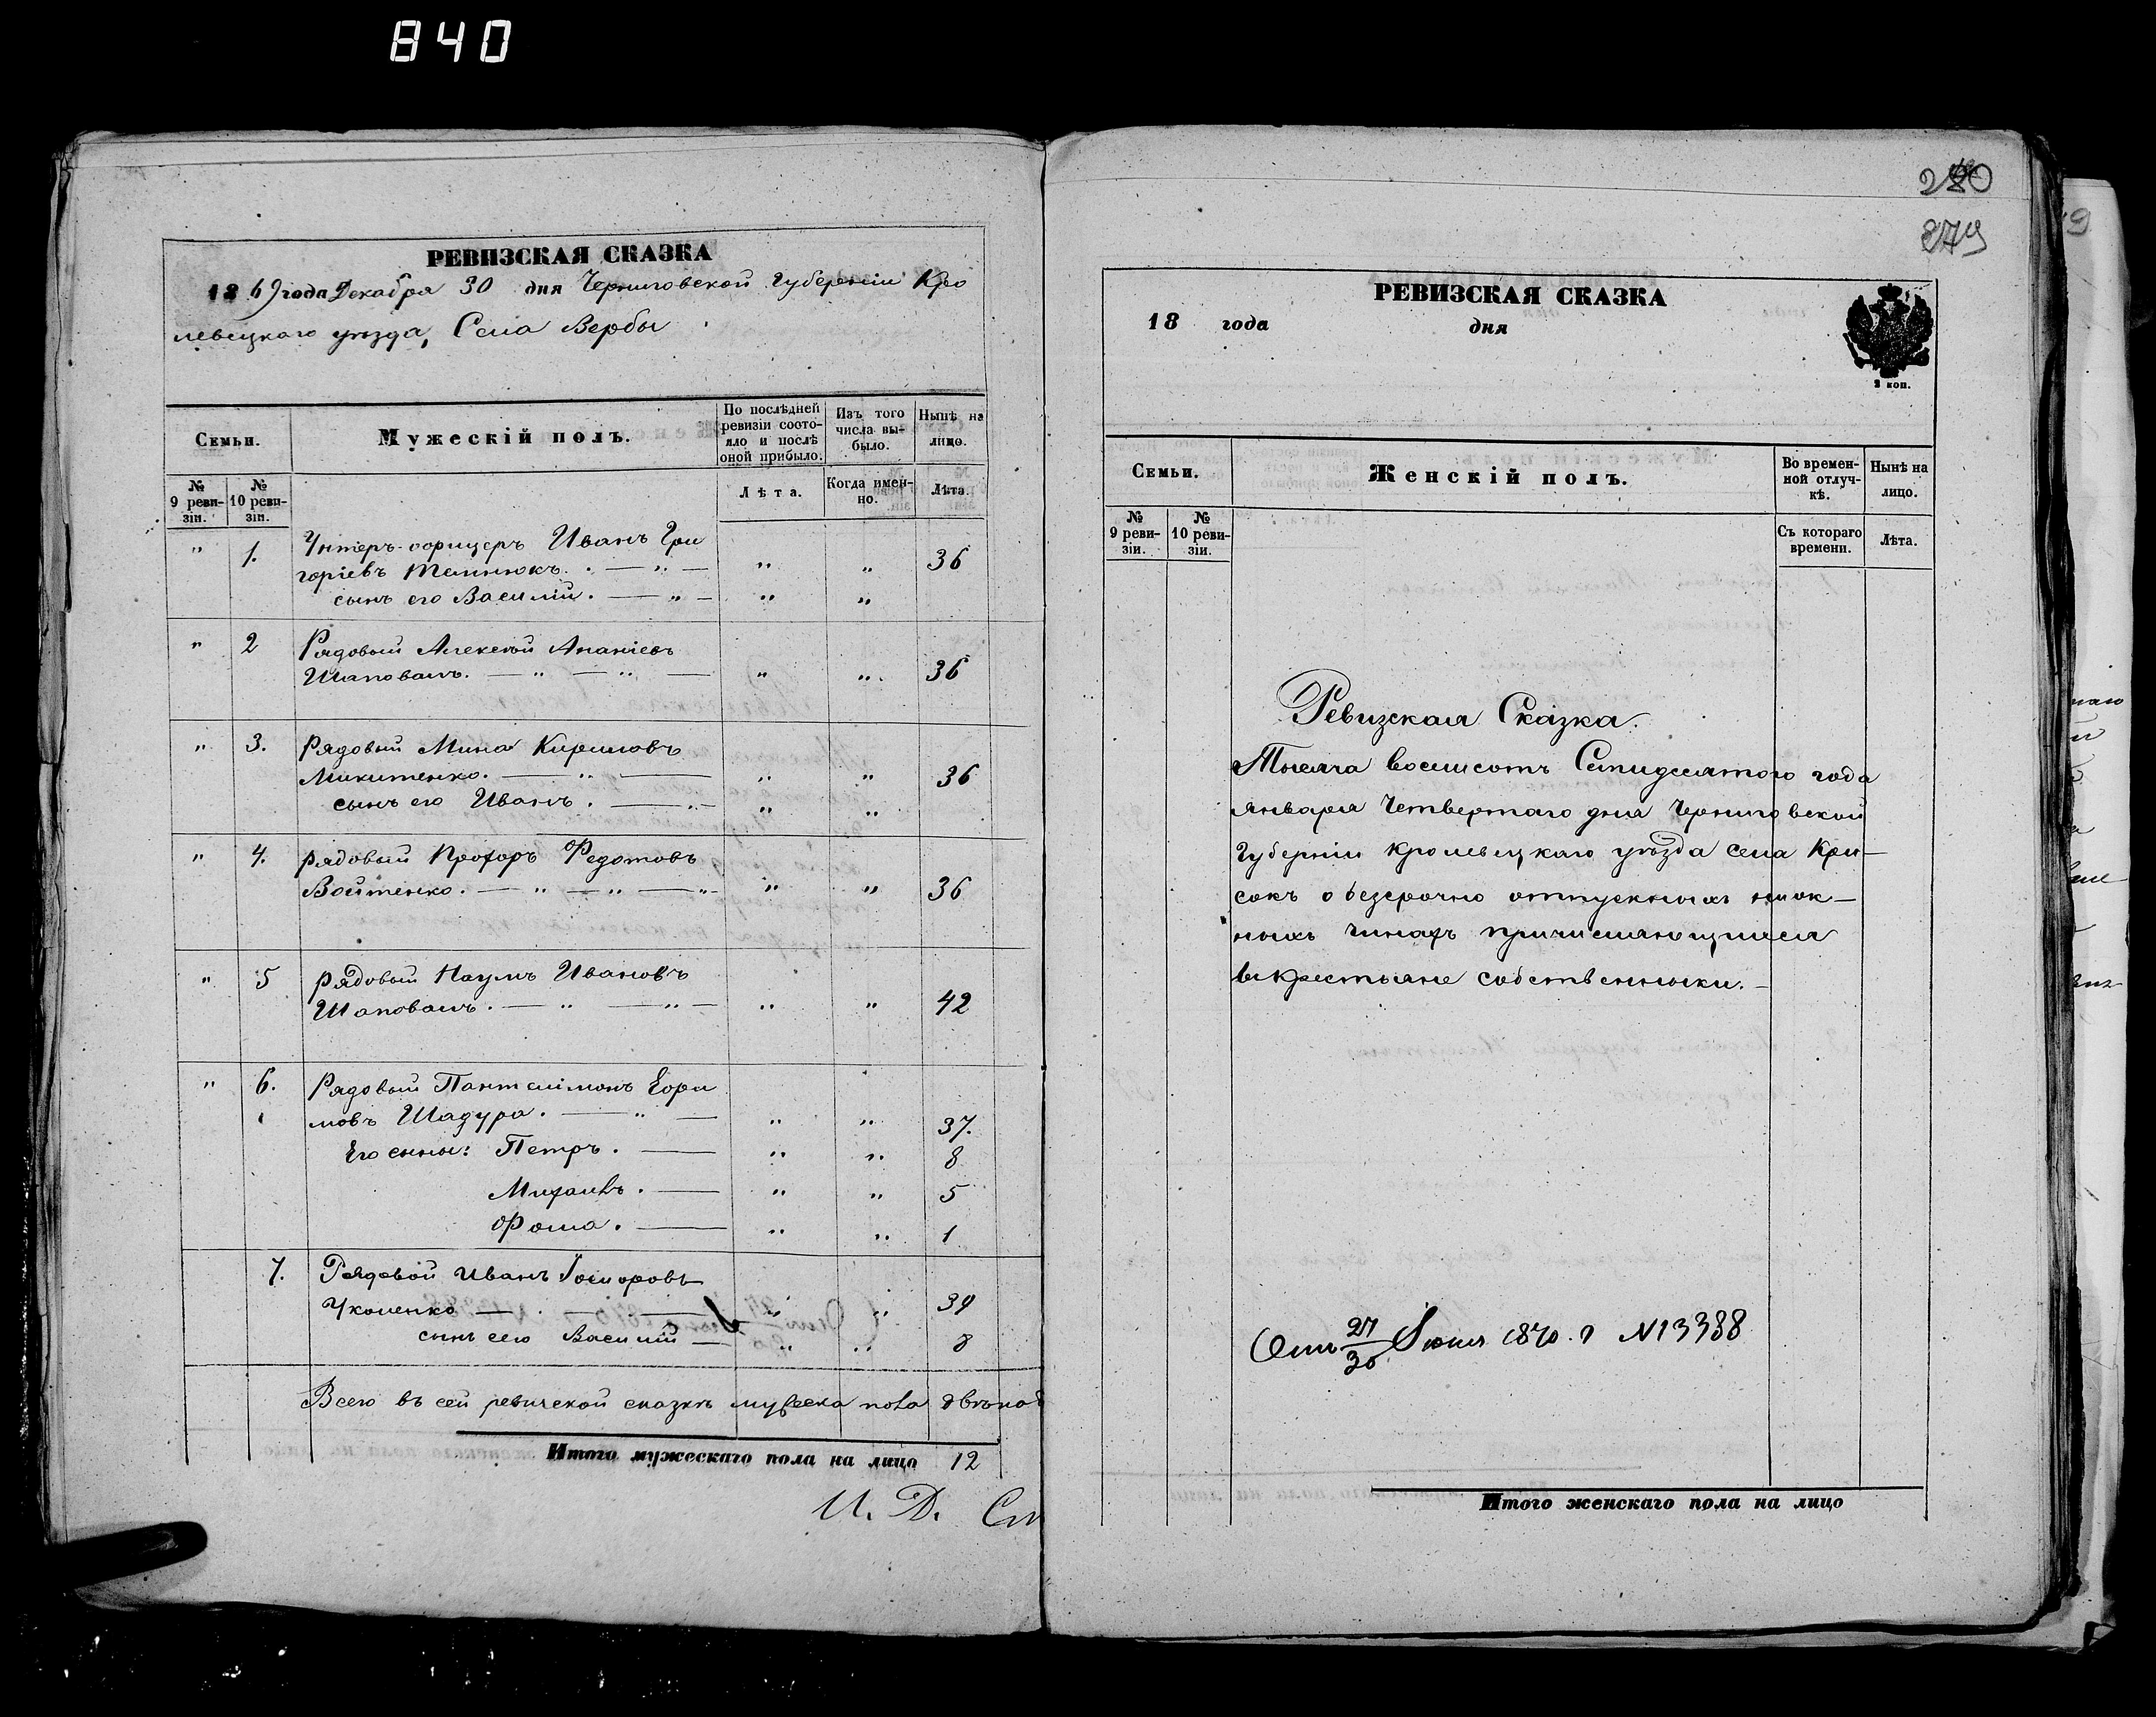 840
РЕВИЗСКАЯ СКАЗКА
1869 года Декабря 30 дня Черниговской Губерніи Кро
левецкаго уѣзда, Села Вербы
Семьи.
Мужескій полъ.
По послѣдней ревизіи состояло и послѣ оной прибыло.
Изъ того числа выбыло.
Нынѣ на лицо.
№ 9 ревизіи.
№ 10 ревизіи.
Лѣта.
Когда именно.
Лѣта.
" 1. Унтеръ-офицеръ Иванъ Гри
горіевъ " " 36
сынъ его Василій. " "
" 2 Рядовый Алексѣй Ананіевъ
Шаповалъ. " " 36
" 3. Рядовый Мина Кириловъ
Микитенко. " " 36
сынъ его Иванъ. " "
" 4. рядовый Прохоръ Федотовъ
Войтенко. " " 36
" 5 рядовый Наумъ Ивановъ
Шаповалъ. " " 42
" 6. Рядовый Пантелімонъ Ефри
мовъ Шадура. " " 37.
Его сыны: Петръ. " " 8
Михаилъ. " " 5
Фома. " " 1
7. Рядовой Иванъ
Уколенко " " 39
сынъ его Василій " " 8
Всего въ сей ревизской сказкѣ мужеска пола двѣнад
Итого мужескаго пола на лицо 12
И. Д. Ст
280
279
РЕВИЗСКАЯ СКАЗКА
18 года дня
2 коп.
Семьи.
Женскій полъ.
Во временной отлучкѣ.
Нынѣ на лицо.
№ 9 ревизіи.
№ 10 ревизіи.
Съ котораго времени.
Лѣта.
Ревизская Сказка.
Тысяча восемсотъ Семидесятого года
Января Четвертаго дня Черниговской
Губерніи Кролевецкаго уѣзда села Кри-
сокъ о безсрочно отпускныхъ ниж-
ныхъ чинахъ причисляющихся
въ крестьяне собственники.
Отъ 27/30 Іюня 1870. г №13388
Итого женскаго пола на лицо